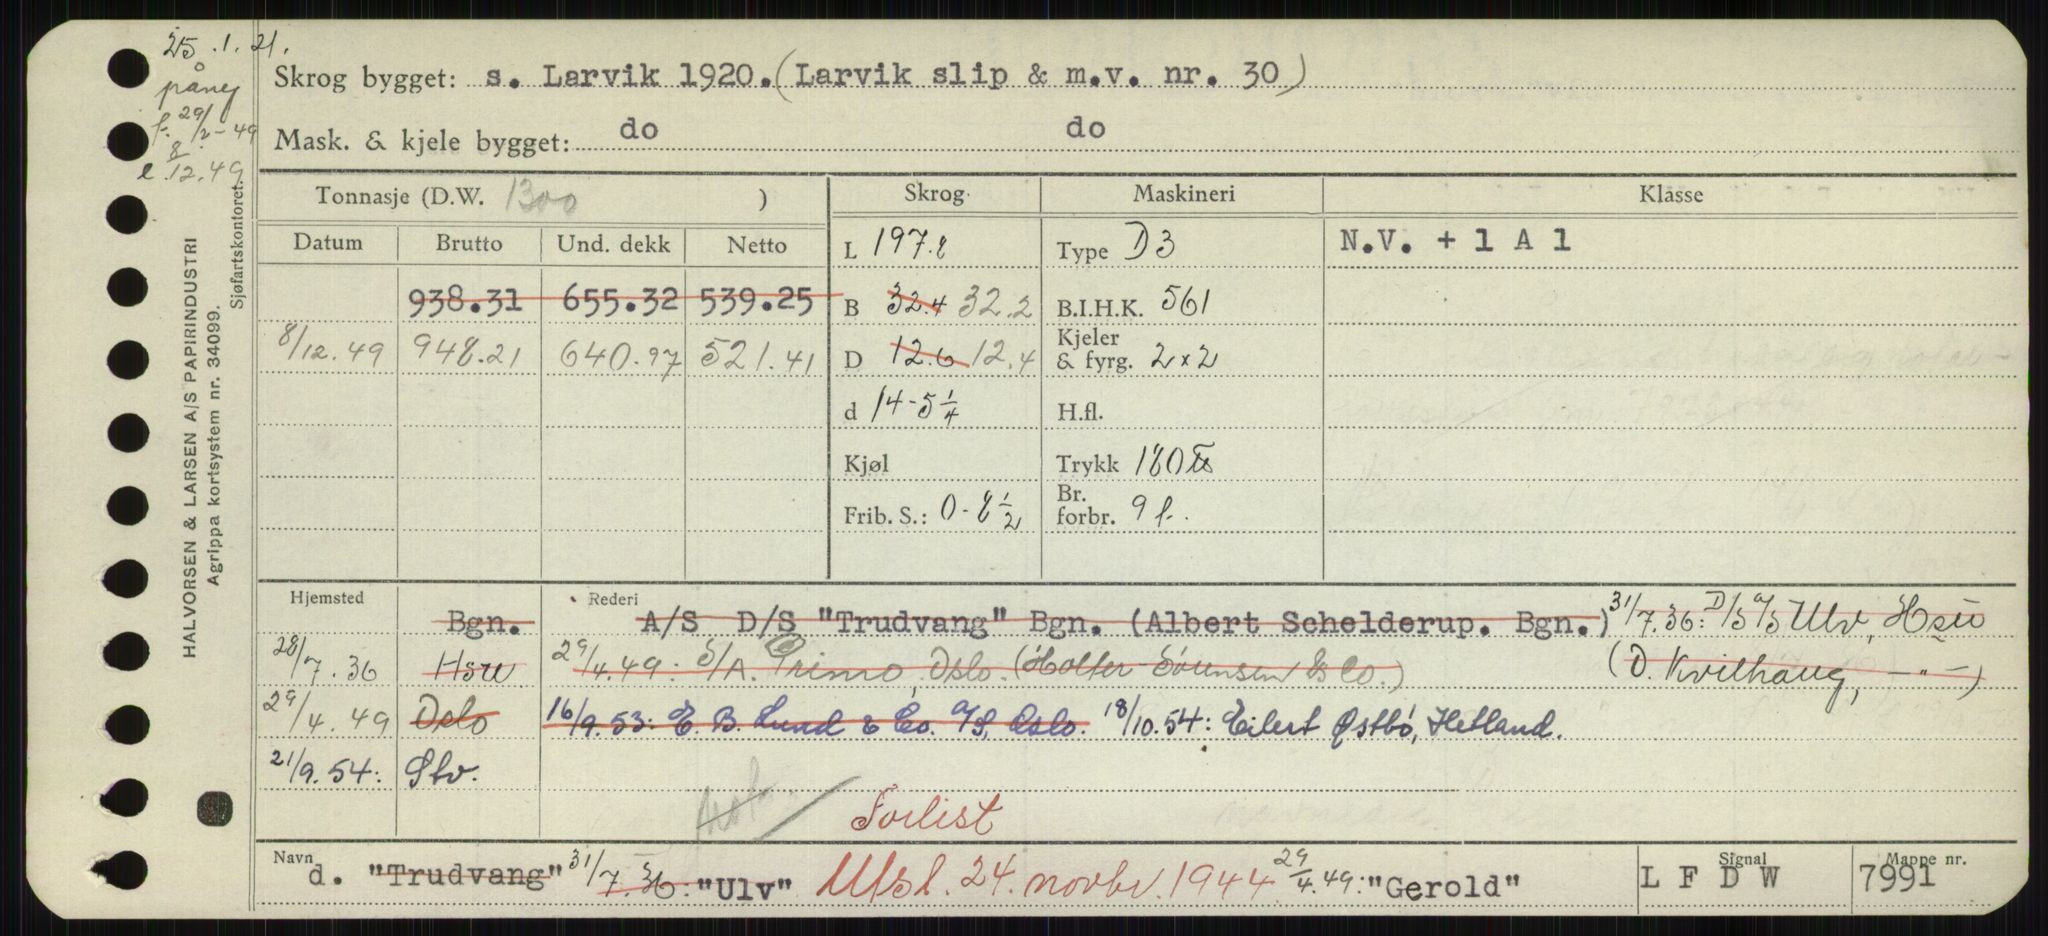 25.1.21.
påny
f. 29/2-49
e 8/12.49
Skrog bygget: s. Larvik 1920. (Larvik slip & m.v. nr. 30)
Mask. & kjele bygget: do do
Tonnasje (D.W. 1300 ) Skrog Maskineri Klasse
Datum Brutto Und. dekk Netto L 197.8 Type D3 N.V. + 1 A 1
938.31 655.32 539.25 B 32.4 32.2 B.I.H.K. 561
8/12.49 948.21 640.97 521.41 D 12.6 12.4 Kjeler & fyrg. 2x2
d 14-5 1/4 H.fl.
Kjøl Trykk 180
Frib. S.: 0-8 1/2 Br. forbr. 9 f.
Hjemsted Rederi
Bgn. A/S D/S "Trudvang" Bgn. (Albert Schelderup. Bgn.) 31/7.36: D/S A/S Ulv, Hsu
28/7.36 Hsu 29/4.49: S/A. Primo, Oslo. (Holter-Sørensen & Co.) (D. Kvilhaug, -"-)
29/4.49 Oslo 16/9.53: E. B. Lund & Co. A/S, Oslo. 18/10.54: Eilert Østbö, Hetland.
21/9.54: Stv.
Forlist
Navn d. "Trudvang" 31/7.36: "Ulv" Utsl. 24. novbr. 1944 29/4.49: "Gerold" Signal L F D W Mappe nr. 7991
HALVORSEN & LARSEN A/S PAPIRINDUSTRI
Agrippa kortsystem nr. 34099.
Sjøfartskontoret.